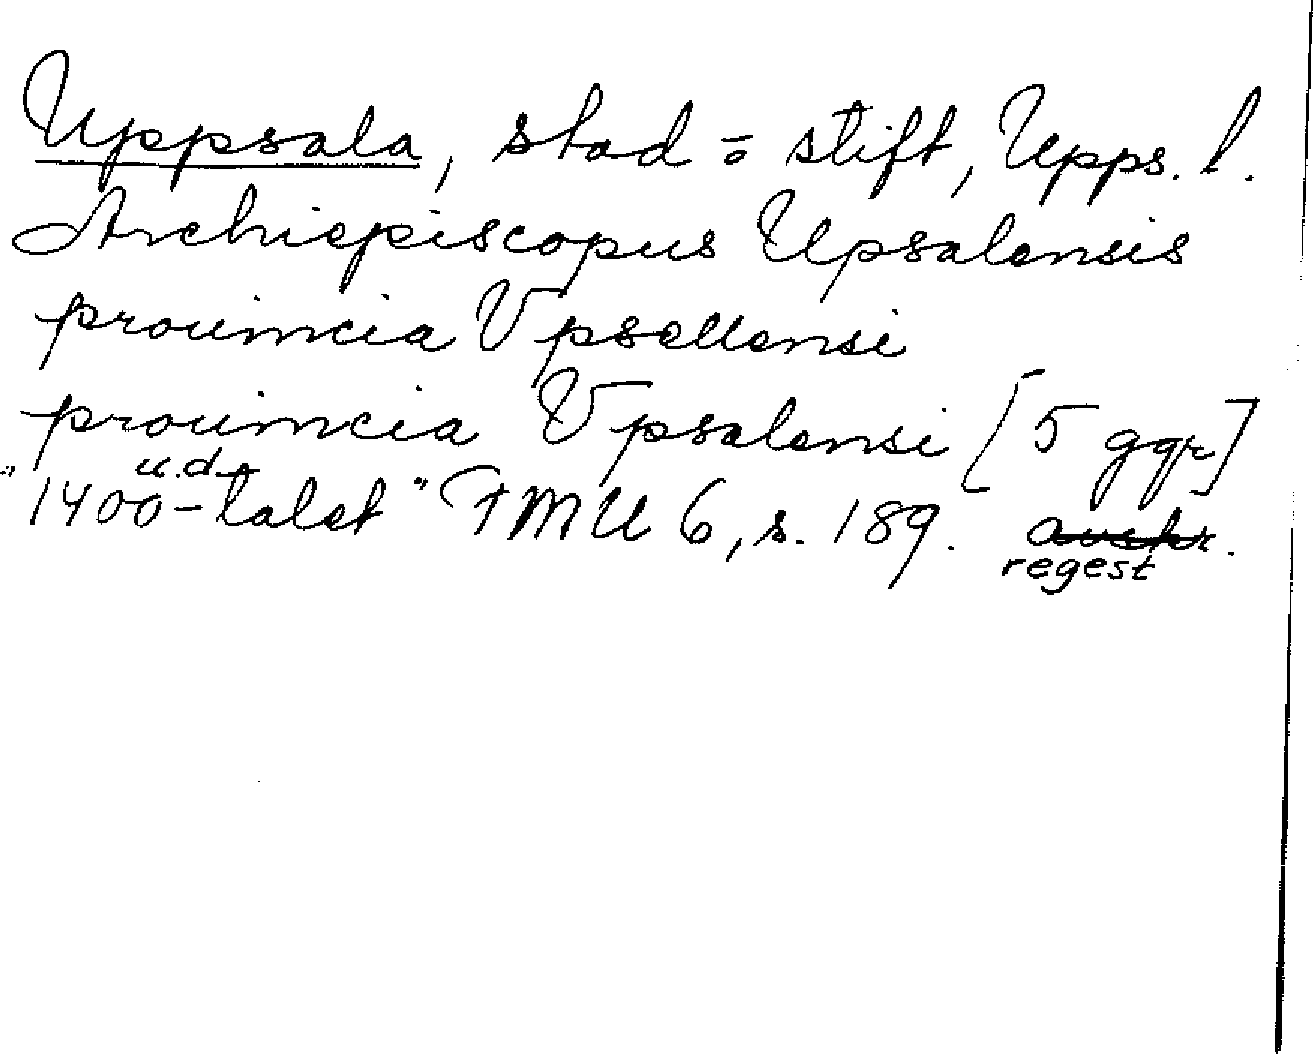 Uppsala, stad o. stift, Upps. l.
Archiepiscopus Upsalensis
prouincia Vpsellensi
prouincia Vpsalensi [5 ggr]
u.d.
"1400-talet" FMU 6, s. 189. avskr.
regest